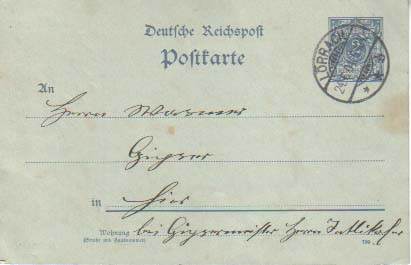 Deutsche Reichspost
Postkarte
LÖRRACH
An
Herrn Wagner
Gipser
in Hier
Wohnung bei Gipsermeister Herrn
(Straße und Hausnummer)